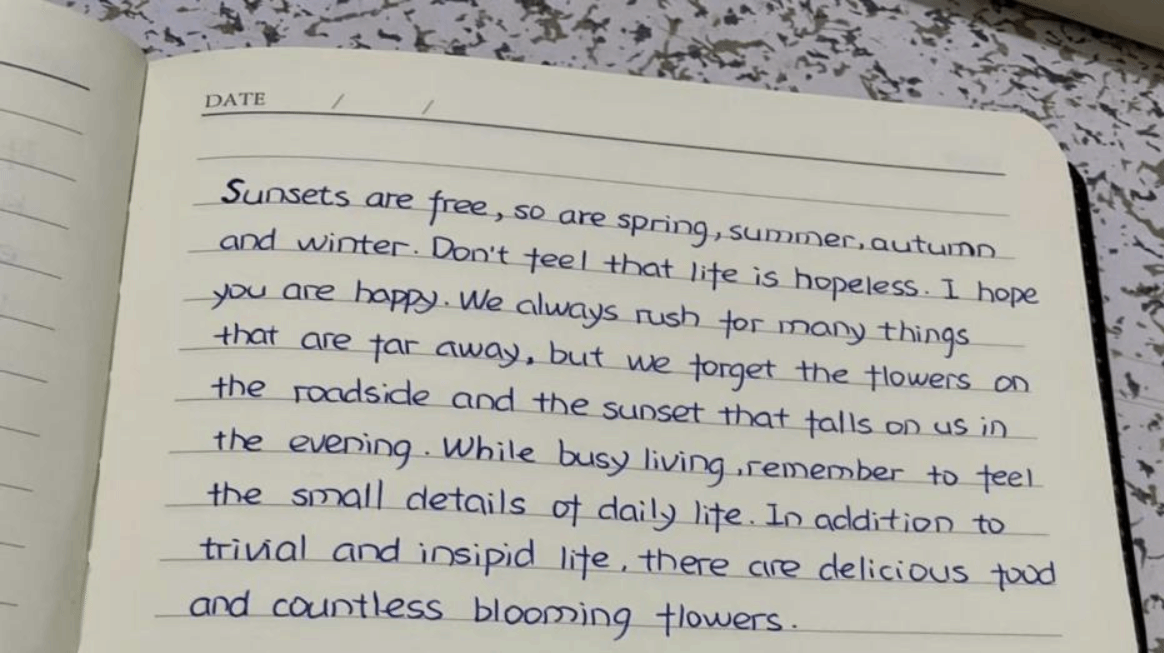 DATE / /
Sunsets are free, so are spring, summer, autumn
and winter. Don't feel that life is hopeless. I hope
you are happy. We always rush for many things
that are far away, but we forget the flowers on
the roadside and the sunset that falls on us in
the evening. While busy living, remember to feel
the small details of daily life. In addition to
trivial and insipid life, there are delicious food
and countless blooming flowers.